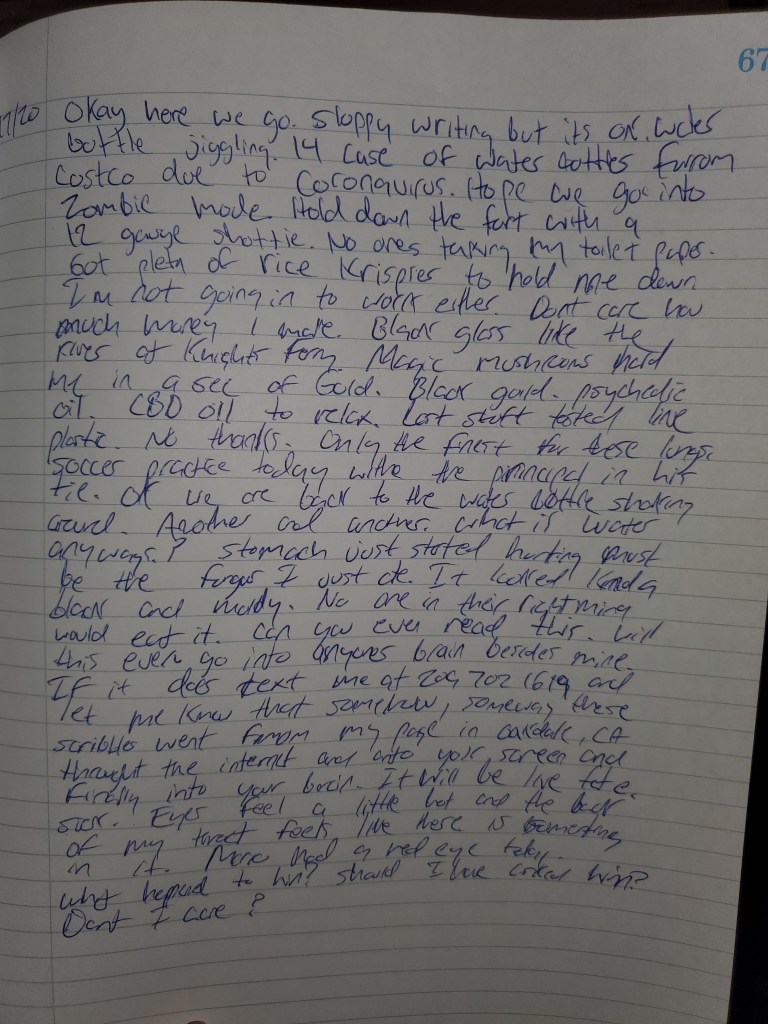 67
7/20 Okay here we go. Sloppy writing but its ok. Water
bottle jiggling. 14 case of water bottles furrom
Costco due to Coronavirus. Hope we go into
Zombie mode. Hold down the fort with a
12 gauge shottie. No ones taking my toilet paper.
Got plenty of rice Krispies to hold me down
I'm not going in to work either. Dont care how
much money I make. Black glass like the
river at Knights ferry Magic mushrooms hold
me in a sec of Gold. Black gold. psychedic
oil. CBD oil to relax. Last stuff tasted like
plastic. No thanks. Only the finest for these lungs.
Soccer practice today withe the principal in his
tie. Ok we are back to the water bottle shaking
crowd. Another and another. What is water
anyways.? Stomach just stated hurting must
be the fungus I just ate. It looked kinda
black and moldy. No one in their right ming
would eat it. Can you ever read this. Will
this even go into anyones brain besides mine.
If it does text me at 209 702 1619 and
let me know that somehow, someway these
scribbles went from my page in oakdale, CA
throught the internet and onto your screen and
finally into your brain. It will be like fate.
Sick. Eyes feel a little hot and the back
of my throat feels like there is something
in it. had a red eye today.
What happend to him? Should I have him?
Dont I care?